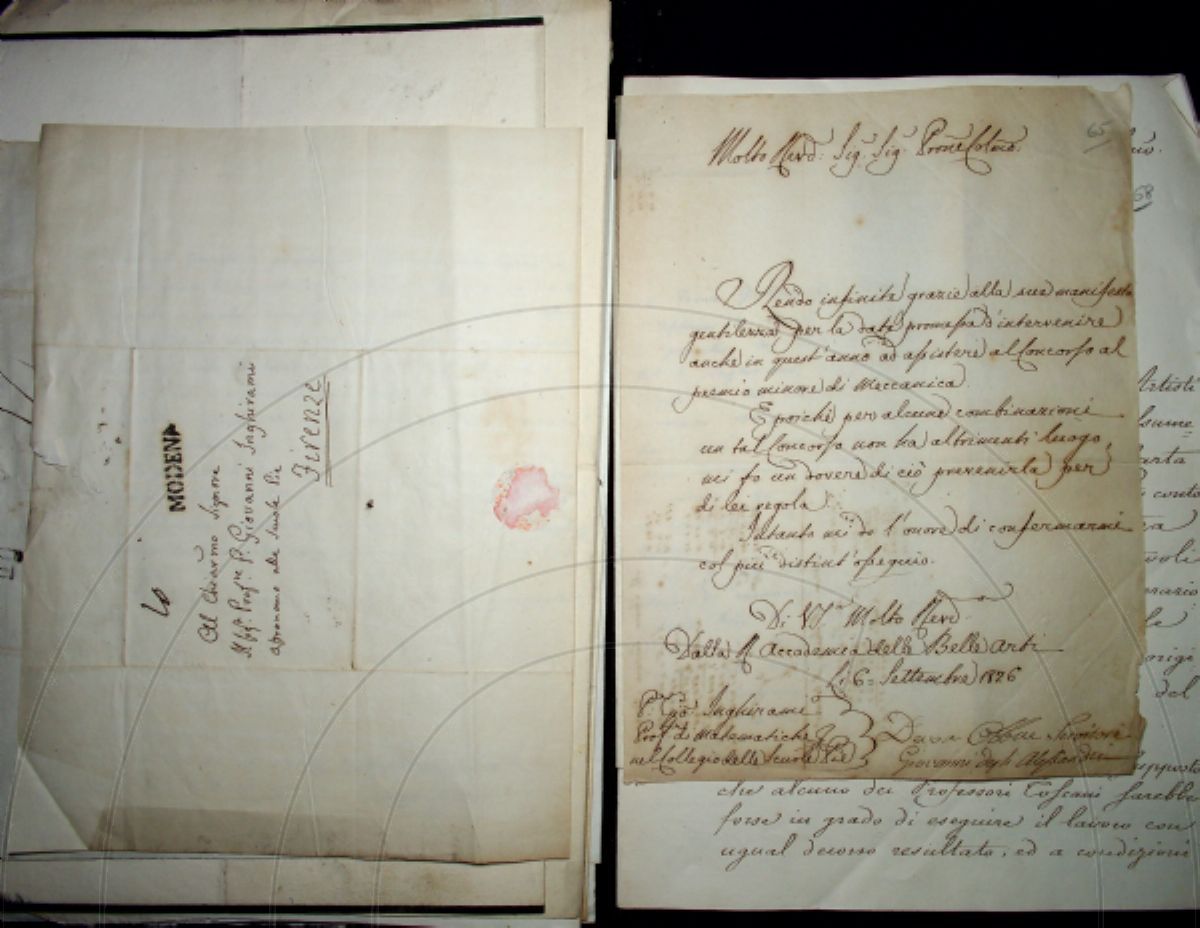 MODENA
10
Al Chiarmo Signore
Il Sigr. Profre P. Giovanni Inghirami
alle Scuole Pie
Firenze
65
Molto Revd: Sigr. Sigr. Prone Colmo.
Rendo infinite grazie alla sua manifesta
gentilezza per la data promessa d'intervenire
anche in quest'anno ad assistere al Concorso al
premio minore di Meccanica.
E poichè per alcune combinazioni
un tal Concorso non ha altrimenti luogo,
mi fo un dovere di ciò prevenirla per
di lei regola.
Intanto mi do l'onore di confermarmi
col più distint'ossequio.
Di VS. Molto Revd.
Dalla R. Accademia delle Belle Arti
Li 6 = Settembre 1826
P. Gio: Inghirami
Profe. di Matematiche
nel Collegio delle Scuole Pie
Devmo Obbmo Servitore
Giovanni degli Alessandri
68
Artisti
carta
conto
del
supposto
che alcuno dei Professori Toscani sarebbe
forse in grado di eseguire il lavoro con
ugual decoro resultato, ed a condizioni